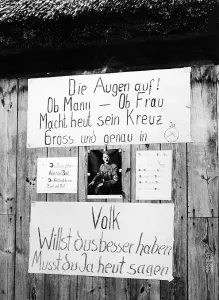 Die Augen auf!
Ob Mann – Ob Frau
Macht heut sein Kreuz
Gross und genau in
Volk
Willst du's besser haben
Musst du Ja heut sagen